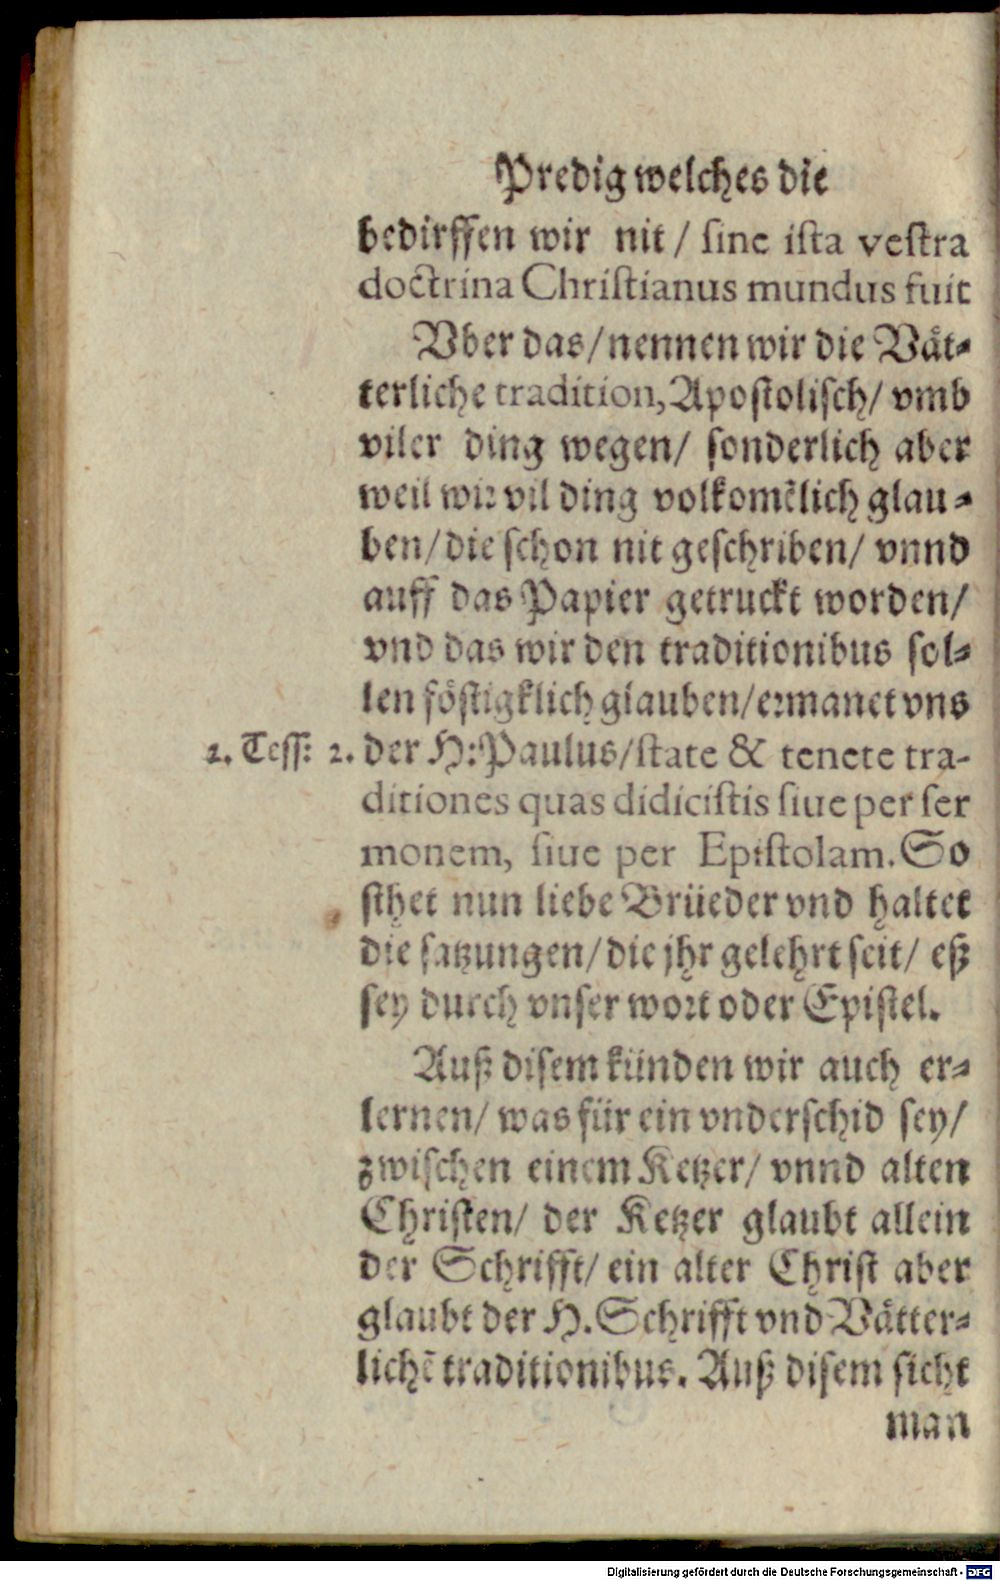 Predig welches die
bedirffen wir nit / sine ista vestra
doctrina Christianus mundus fuit
Vber das / nennen wir die Våt-
terliche tradition, Apostolisch / vmb
viler ding wegen / sonderlich aber
weil wir vil ding volkomẽlich glau-
ben / die schon nit geschriben / vnnd
auff das Papier getruckt worden /
vnd das wir den traditionibus sol-
len föstigklich glauben / ermanet vns
2. Tess: 2. der H: Paulus / state & tenete tra-
ditiones quas didicistis siue per ser
monem, siue per Epistolam. So
sthet nun liebe Brüeder vnd haltet
die satzungen / die jhr gelehrt seit / eß
sey durch vnser wort oder Epistel.
Auß disem künden wir auch er-
lernen / was für ein vnderschid sey /
zwischen einem Ketzer / vnnd alten
Christen / der Ketzer glaubt allein
der Schrifft / ein alter Christ aber
glaubt der H. Schrifft vnd Våtter-
lichẽ traditionibus. Auß disem sicht
man
Digitalisierung gefördert durch die Deutsche Forschungsgemeinschaft - DFG